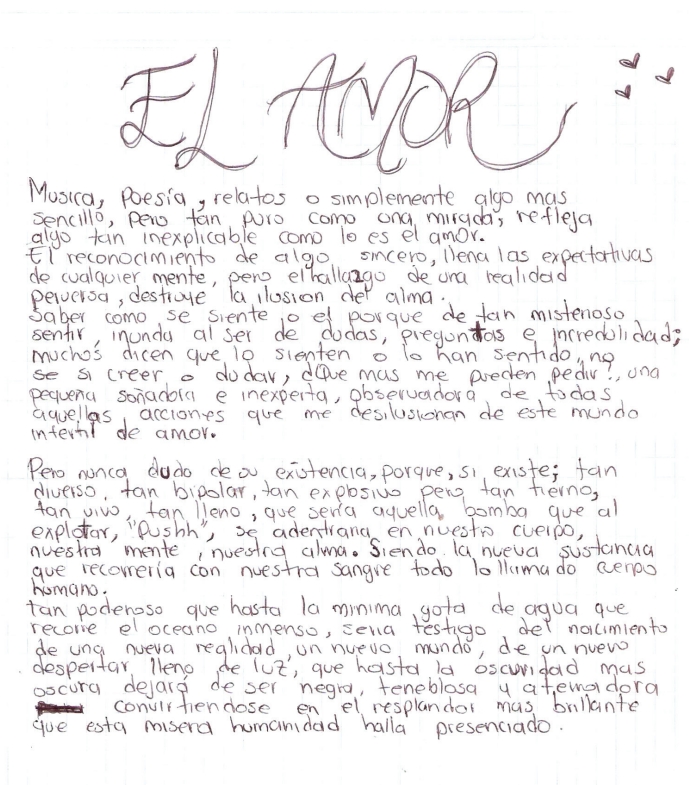 EL AMOR
Musica, Poesía, relatos o simplemente algo mas
sencillo, pero tan puro como una mirada, refleja
algo tan inexplicable como lo es el amor.
El reconocimiento de algo sincero, llena las expectativas
de cualquier mente, pero el hallazgo de una realidad
perversa, destruye la ilusion del alma.
Saber como se siente o el porque de tan misterioso
sentir, inunda al ser de dudas, preguntas e incredulidad;
muchos dicen que lo sienten o lo han sentido, no
se si creer o dudar, ¿Que mas me pueden pedir?, una
pequeña soñadora e inexperta, observadora de todas
aquellas acciones que me desilusionan de este mundo
infertil de amor.
Pero nunca dudo de su existencia, porque, si existe; tan
diverso, tan bipolar, tan explosivo pero tan tierno,
tan vivo, tan lleno, que seria aquella bomba que al
explotar, "Pushh", se adentraria en nuestro cuerpo,
nuestra mente, nuestra alma. Siendo la nueva sustancia
que recorrería con nuestra sangre todo lo llamado cuerpo
humano.
tan poderoso que hasta la minima gota de agua que
recorre el oceano inmenso, seria testigo del nacimiento
de una nueva realidad, un nuevo mundo, de un nuevo
despertar lleno de luz, que hasta la oscuridad mas
oscura dejará de ser negra, teneblosa y atemoradora
convirtiendose en el resplandor mas brillante
que esta misera humanidad halla presenciado.